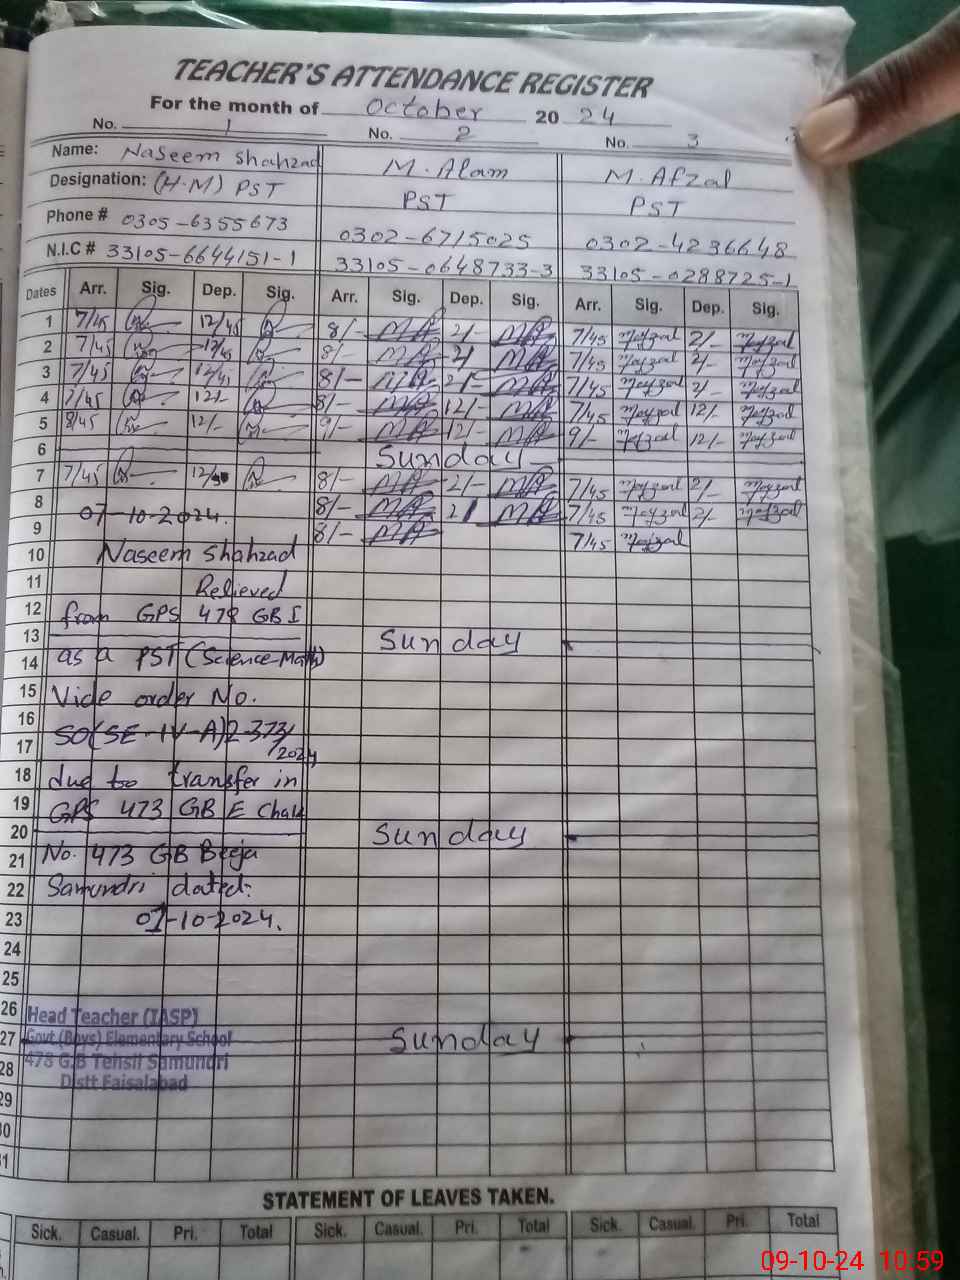 TEACHER'S ATTENDANCE REGISTER
For the month of October 2024
No. 1 No. 2 No. 3
Name: Naseem Shahzad M. Alam M. Afzal
Designation: (H.M) PST PST PST
Phone # 0305-6355673 0302-6715025 0302-4236648
N.I.C # 33105-6644151-1 33105-0648733-3 33105-0288725-1
Dates Arr. Sig. Dep. Sig. Arr. Sig. Dep. Sig. Arr. Sig. Dep. Sig.
1 7/45 12/45 8/- MA 2/- MA 7/45 Mafzal 2/- Mafzal
2 7/45 12/45 8/- MA 2/ MA 7/45 Mafzal 2/- Mafzal
3 7/45 12/45 8/- MA 2/- MA 7/45 Mafzal 2/- Mafzal
4 7/45 12/- 8/- MA 12/- MA 7/45 Mafzal 12/- Mafzal
5 8/45 12/- 9/- MA 12/- MA 9/- Mafzal 12/- Mafzal
6 Sunday
7 7/45 8/- MA 2/- MA 7/45 Mafzal 2/- Mafzal
8 07-10-2024. 8/- MA 2/ MA 7/45 Mafzal 2/- Mafzal
9 8/- MA 7/45 Mafzal
10 Naseem Shahzad
11 Relieved
12 from GPS 478 GB I
13 Sunday
14 as a PST (Science-Math)
15 Vide order No.
16
17 SO(SE-IV-A)2-373/2024
18 due to transfer in
19 GPS 473 GB E Chak
20 Sunday
21 No. 473 GB Beeja
22 Samundri dated:
23 07-10-2024.
24
25
26 Head Teacher (IASP)
27 Govt (Boys) Elementary School Sunday
28 478 G.B Tehsil Samundri
Distt Faisalabad
29
30
31
STATEMENT OF LEAVES TAKEN.
Sick. Casual. Pri. Total Sick. Casual. Pri. Total Sick. Casual. Pri. Total
09-10-24 10.59